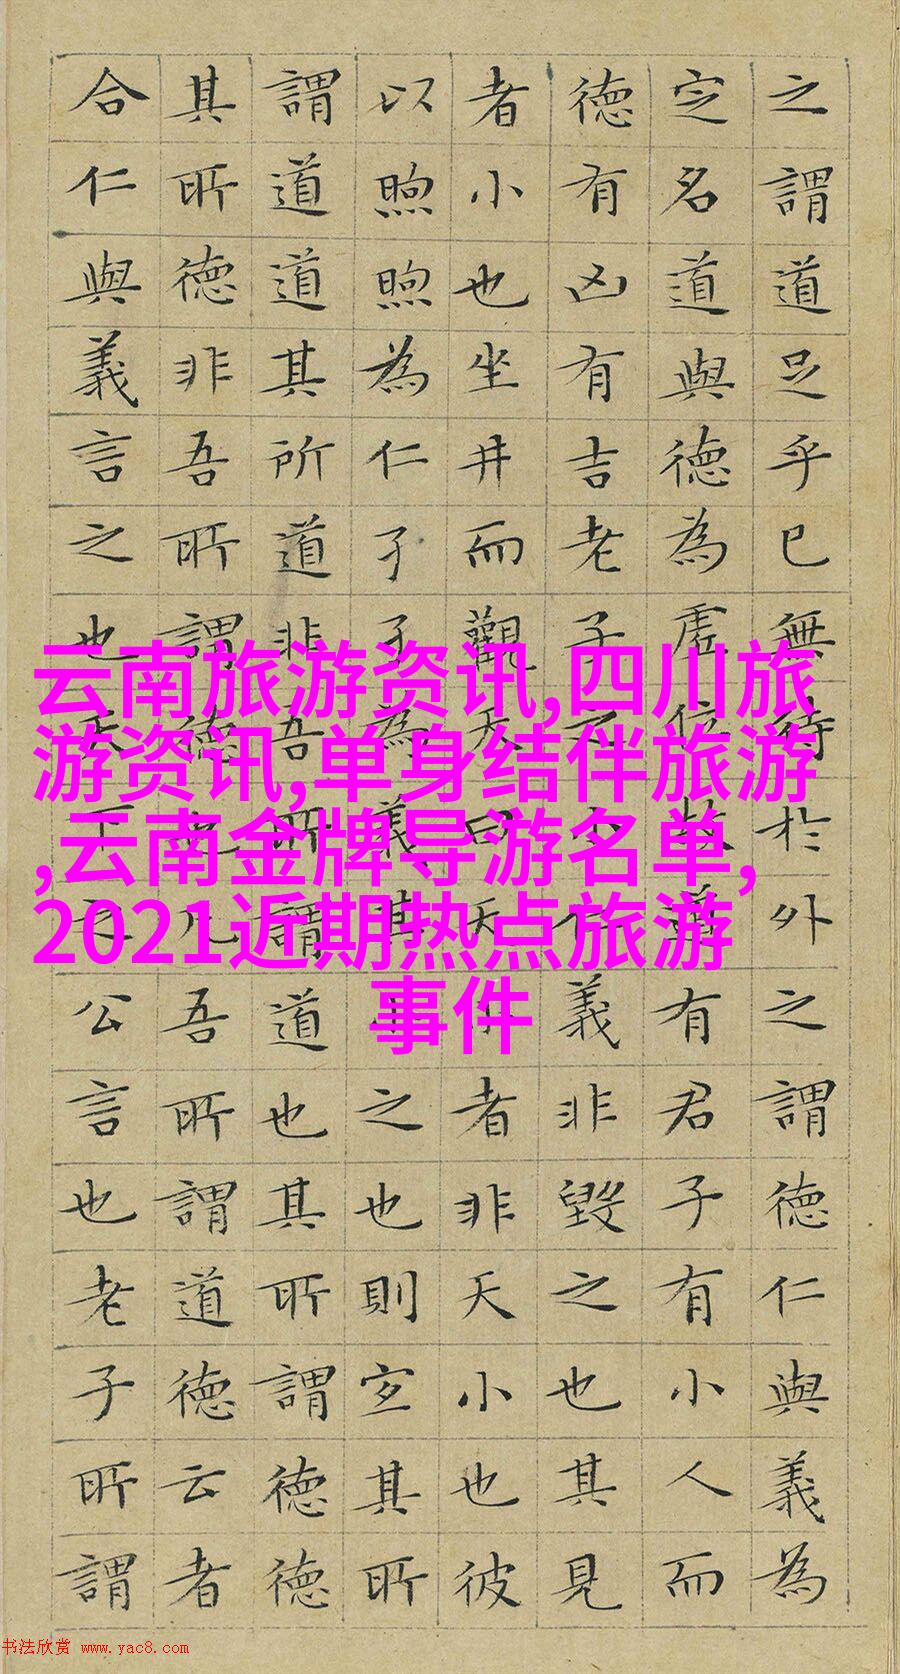 之謂道足乎已無待於外之謂德仁與義為
定名道與德為虛位故道有君子有小人而
德有凶有吉老子之小仁義非毀之也其見
者小也坐井而觀天曰天小者非天小也彼
以煦煦為仁孑孑為義其小之也則宜其所
謂道道其所道非吾所謂道也其所謂德德
其所德非吾所謂德也凡吾所謂道德云者
合仁與義言之也天下之公言也老子所謂
云南旅游资讯,四川旅
游资讯,单身结伴旅游
,云南金牌导游名单,
2021近期热点旅游
事件
书法欣赏 www.yac8.com